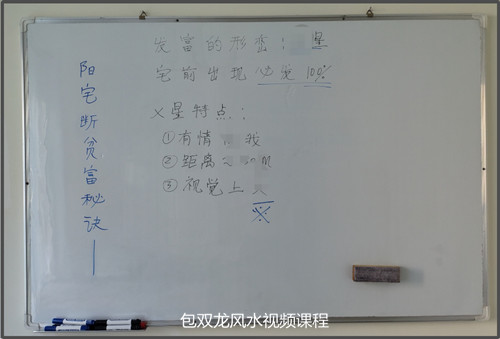 阳宅断贫富秘诀一
发富的形峦：星
宅前出现必发100%
X星特点：
①有情 我
②距离
③视觉上
※
包双龙风水视频课程